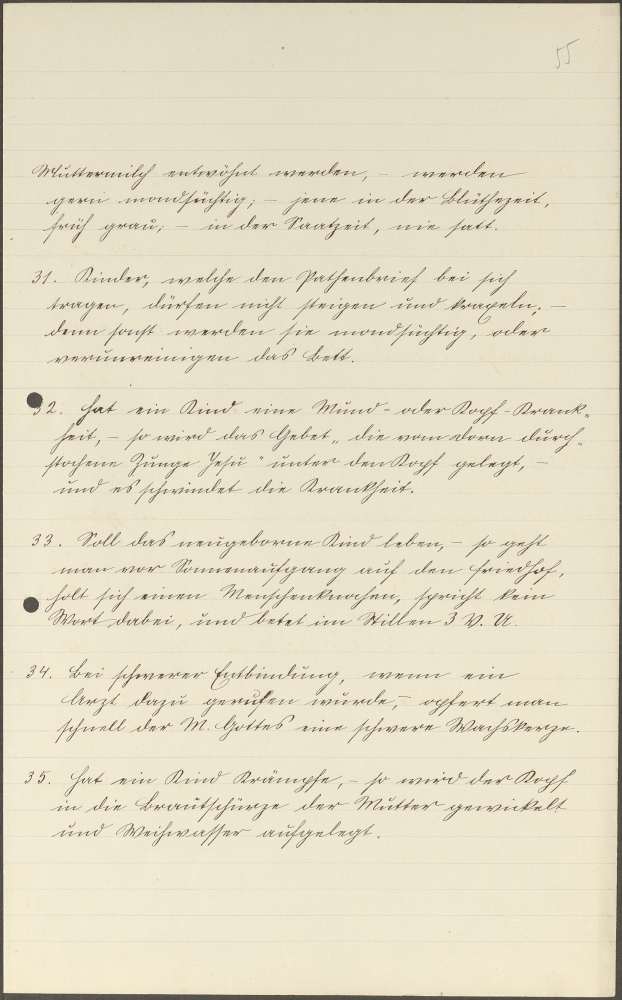 55
Muttermilch entwöhnt werden, – werden
gern mondsüchtig; – jene in der Blüthezeit,
früh grau; – in der Saatzeit, nie satt.
31. Kinder, welche den Pathenbrief bei sich
tragen, dürfen nicht steigen und kraxeln; –
denn sonst werden sie mondsüchtig, oder
verunreinigen das Bett.
32. Hat ein Kind eine Mund- oder Kopf-Krank-
heit, – so wird das Gebet „die vom Dorn durch-
stochene Zunge Jesu" unter den Kopf gelegt, –
und es schwindet die Krankheit.
33. Soll das neugeborne Kind leben, – so geht
man vor Sonnenaufgang auf den Friedhof,
holt sich einen Menschenknochen, spricht kein
Wort dabei, und betet im Stillen 3 V. U.
34. Bei schwerer Entbindung, wenn ein
Arzt dazu gerufen wurde, – opfert man
schnell der M. Gottes eine schwere Wachskerze.
35. Hat ein Kind Krämpfe, – so wird der Kopf
in die Brautschürze der Mutter gewickelt
und Weihwasser aufgelegt.